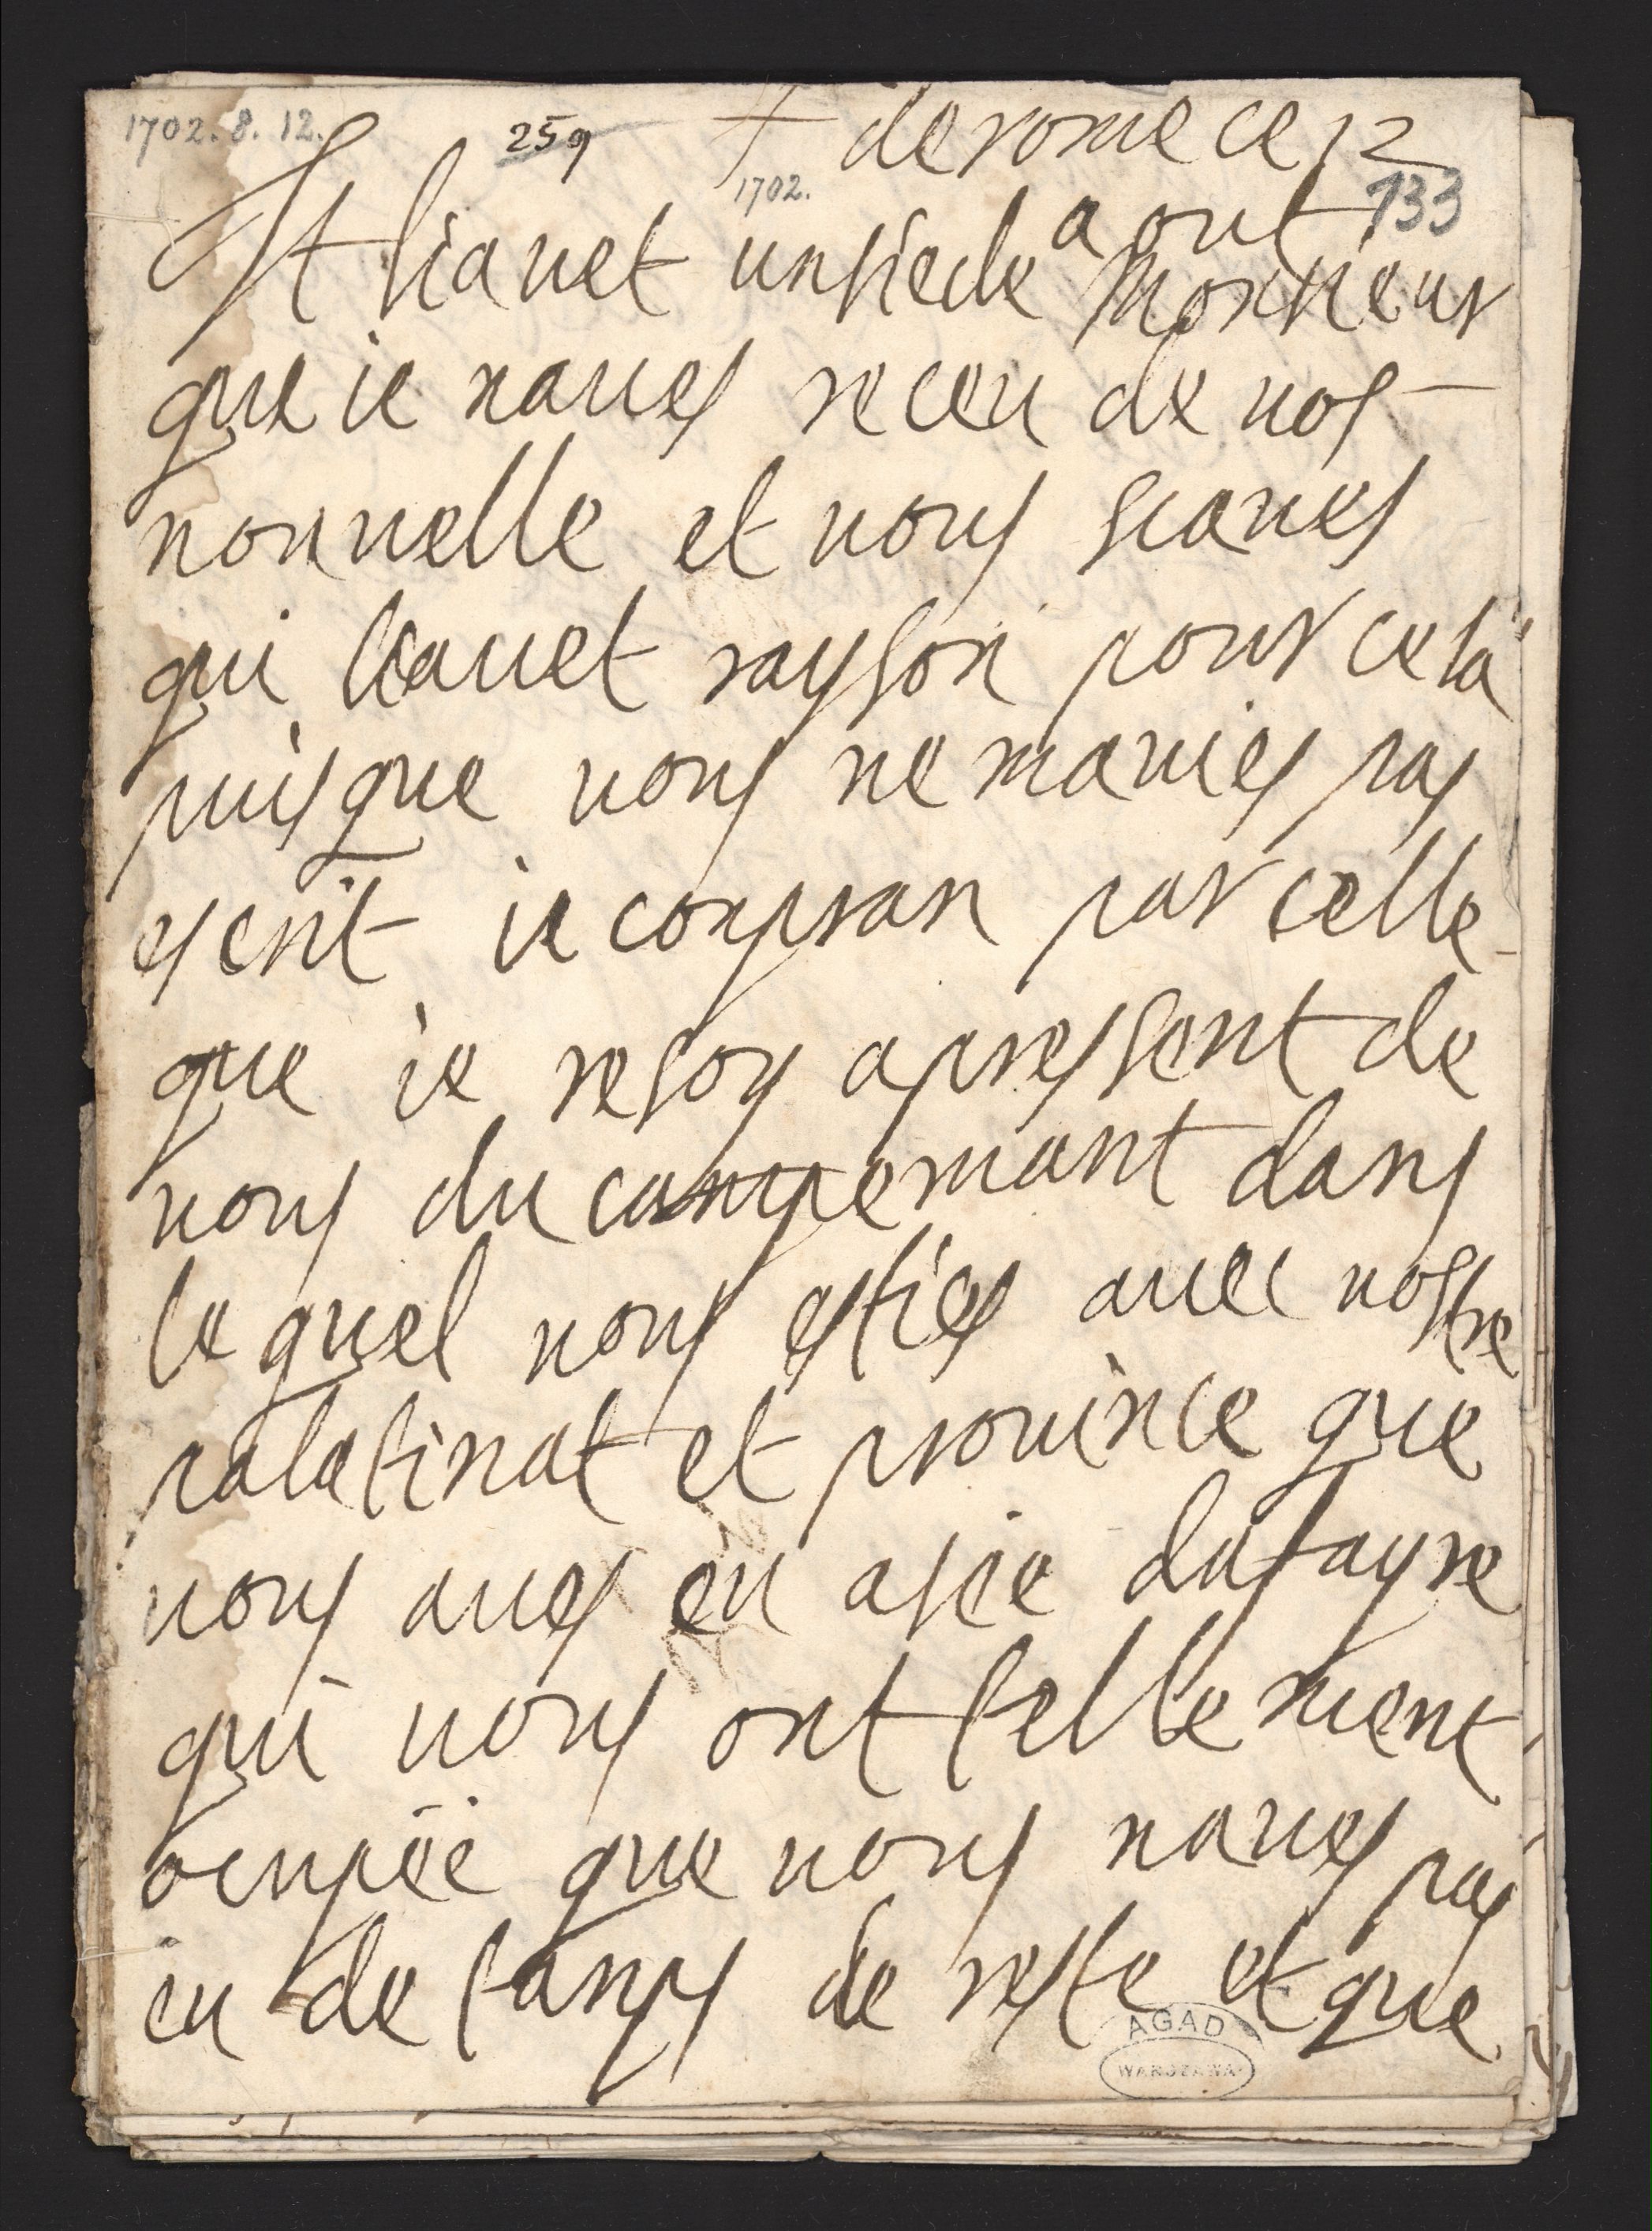 1702. 8. 12. 259 + de rome ce 12
1702. aout 133
Il liauet un siecle Monsieur
que ie naues receu de vos
nouuelle et vous scaues
qui liauet rayson pour cela
puisque vous ne mauies pas
escrit ie conpran par celle
que ie resoy apressent de
vous du campemant dans
le quel vous esties auec vostre
palatinat et prouince que
vous aues eu assé dafayre
qui vous ont tellement
ocupéé que vous naues pas
eu de tamps de reste et que
AGAD
WARSZAWA